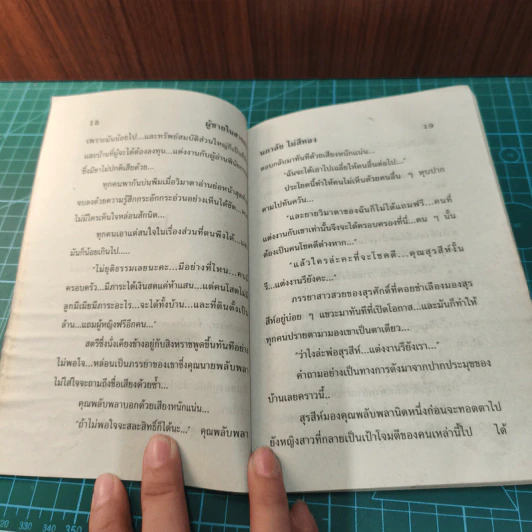 18
ผู้ชายใน
เพราะมันน้อยไป...และทรัพย์สมบัติส่วนใหญ่ก็เป็น
และบ้านที่ผู้จะได้ต้องลงทุน...แต่งงานกับผู้อ่าน
ซึ่งมีขาไม่ปกติเสียด้วย...
ทุกคนพากันบ่นพึมเมื่อวิมาดาอ่านย่อหน้าสุดท้าย
จบลงด้วยความรู้สึกกระอักกระอ่วนอย่างเห็นได้ชัด...
ไม่มีใครเห็นใจหล่อนสักนิด...
ทุกคนเอาแต่สนใจในเรื่องส่วนที่ตนพึงได้...
มันก็น้อยเกินไป.....
"ไม่ยุติธรรมเลยนะคะ...มีอย่างที่ไหน...คน
ครอบครัว...มีภาระได้เงินสดแค่ห้าแสน...แต่คนโสดไม่มี
ลูกมีเมียมีภาระอะไร...จะได้ทั้งบ้าน...และที่ดินตั้งเป็น
ล้าน...แถมผู้หญิงฟรีอีกคน..."
สตรีซึ่งนั่งเคียงข้างอยู่กับสิงหราชพูดขึ้นทันทีอย่าง
ไม่พอใจ...หล่อนเป็นภรรยาของเขาซึ่งคุณนายพลับพลา
ไม่ใส่ใจจะถามถึงชื่อเสียงด้วยซ้ำ...
คุณพลับพลาบอกด้วยเสียงหนักแน่น...
"ถ้าไม่พอใจจะสละสิทธิ์ก็ได้นะ..." คุณพลับพลา
นลาลัย ไผ่สีทอง
19
ตอบกลับมาทันทีด้วยเสียงหนักแน่น...
"ฉันจะได้เอาไปเฉลี่ยให้คนอื่นต่อไป..."
ประโยคนี้ทำให้คนไม่เห็นด้วยคนอื่น ๆ หุบปาก
ตามไปทันควัน...
"และยายวิมาดาของฉันก็ไม่ได้แถมฟรี...คนที่
แต่งงานกับเขาเท่านั้นจึงจะได้ครอบครองที่นี่...คน ๆ นั้น
ต้องเป็นคนโชคดีต่างหาก..."
"แล้วใครล่ะคะที่จะโชคดี...คุณสุรสีห์งั้น
รึ...แต่งงานรึยังคะ..."
ภรรยาสาวสวยของสุรศักดิ์ที่คอยชำเลืองมองสุร
สีห์อยู่บ่อย ๆ แขวะมาทันทีที่เปิดโอกาส...และมันก็ทำให้
ทุกคนปรายตามามองเขาเป็นตาเดียว...
"ว่าไงล่ะพ่อสุรสีห์...แต่งงานรึยังเรา..."
คำถามอย่างเป็นทางการดังมาจากปากประมุขของ
บ้านเลยคราวนี้..
สุรสีห์มองคุณพลับพลานิดหนึ่งก่อนจะทอดตาไป
ยังหญิงสาวที่กลายเป็นเป้าโจมตีของคนเหล่านี้ไป ได้
340
350